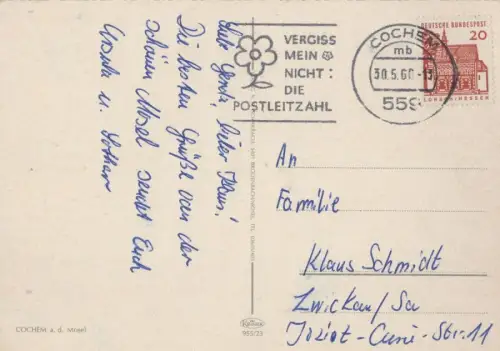 Liebe Gerda, lieber Klaus!
Die besten Grüße von der
schönen Mosel sendet Euch
Ursula u. Lothar
COCHEM a. d. Mosel
VERGISS
MEIN
NICHT:
DIE
POSTLEITZAHL
COCHEM
mb
30.5.66
559
DEUTSCHE BUNDESPOST
20
LORSCH/HESSEN
An
Familie
Klaus Schmidt
Zwickau/Sa
Joliot-Curie-Str. 11
950/23